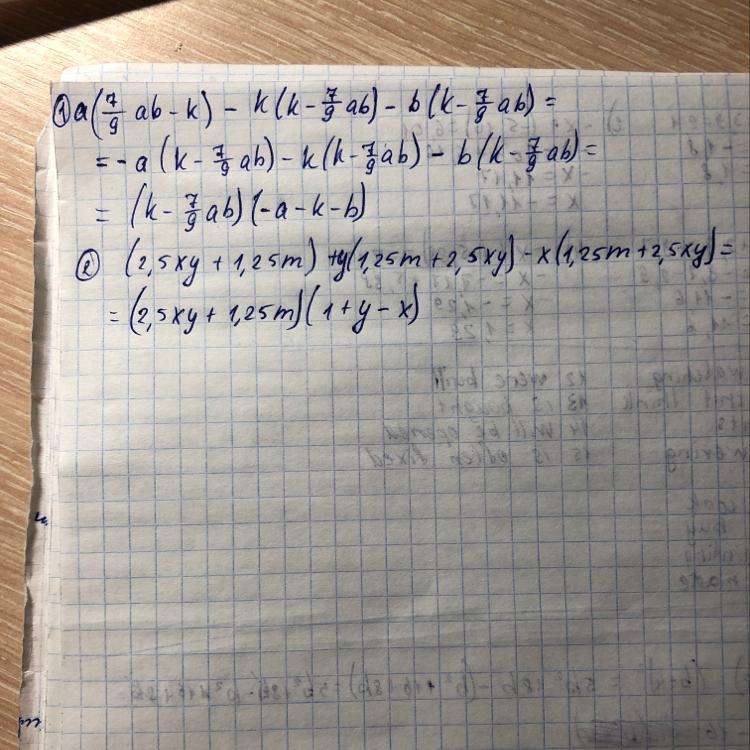 ① a(7/9 ab - k) - k(k - 7/9 ab) - b(k - 7/9 ab) =
= -a(k - 7/9 ab) - k(k - 7/9 ab) - b(k - 7/9 ab) =
= (k - 7/9 ab)(-a - k - b)
② (2,5xy + 1,25m) + y(1,25m + 2,5xy) - x(1,25m + 2,5xy) =
= (2,5xy + 1,25m)(1 + y - x)